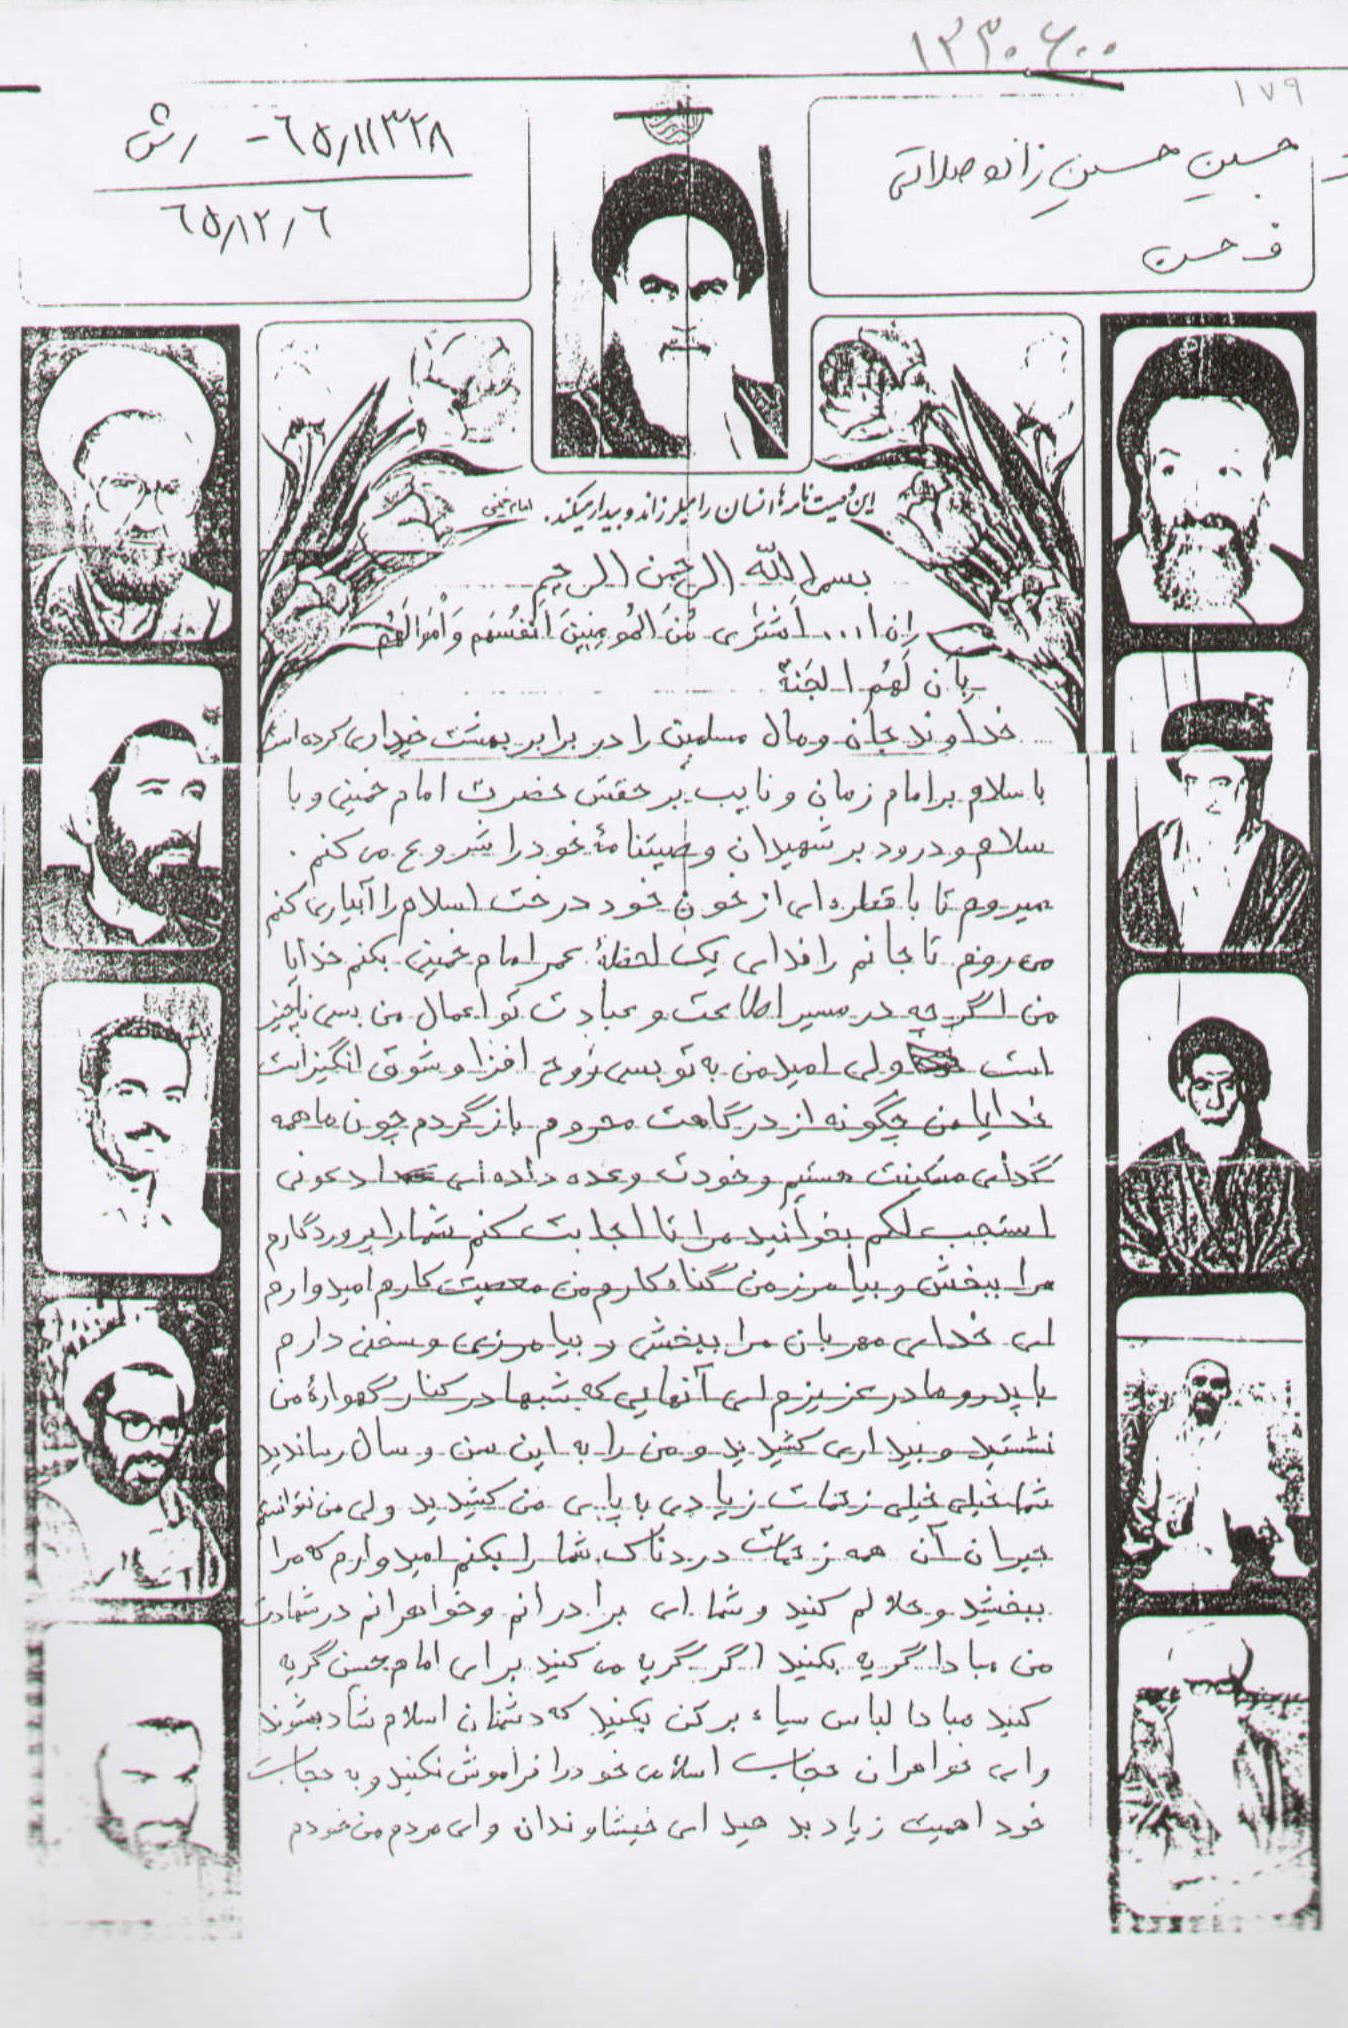 ۱۳۳۰۶۰۰
۱۷۹
حسین حسین زاده صلاتی
ف حسن
۶۵/۱۱۳۲۸ - رش
۶۵/۱۲/۶
این وصیت نامه‌ها انسان را میلرزاند و بیدار میکند. امام خمینی
بسم الله الرحمن الرحیم
اِن ا... اَشتَری مُنَ المُومِنینَ اَنفُسَهم وَاَموالَهُم
بِان لَهُم الجَنة
خداوند جان و مال مسلمین را در برابر بهشت خریداری کرده است
با سلام بر امام زمان و نایب بر حقش حضرت امام خمینی و با
سلام و درود بر شهیدان وصیتنامهٔ خود را شروع می کنم .
میروم تا با قطره ای از خون خود درخت اسلام را آبیاری کنم
می روم تا جانم را فدای یک لحظهٔ عمر امام خمینی بکنم خدایا
من اگر چه در مسیر اطاعت و عبادت تو اعمال من بسی ناچیز
است ولی امید من به تو بسی روح افزا و شوق انگیز است
خدایا من چگونه از درگاهت محروم باز گردم چون ما همه
گدای مسکینت هستیم و خودت وعده داده ای ادعونی
استجب لکم بخوانید مرا تا اجابت کنم شما را پروردگارم
مرا ببخش و بیامرز من گناه کارم من معصیت کارم امیدوارم
ای خدای مهربان مرا ببخشی و بیامرزی و سخنی دارم
با پدر و مادر عزیزم ای آنهایی که شبها در کنار گهوارهٔ من
نشستید و بیداری کشیدید و من را به این سن و سال رساندید
شما خیلی خیلی زحمات زیادی به پایی من کشیدید ولی من نتوانستم
جبران آن همه زحمات دردناک شما را بکنم امیدوارم که مرا
ببخشید و حلالم کنید و شما ای برادرانم و خواهرانم در شهادت
من مبادا گریه بکنید اگر گریه می کنید برای امام حسین گریه
کنید مبادا لباس سیاه بر تن بکنید که دشمنان اسلام شاد بشوند
و ای خواهران حجاب اسلامی خود را فراموش نکنید و به حجاب
خود اهمیت زیاد بدهید ای خیشاوندان و ای مردم من خودم